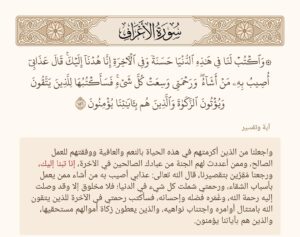 سُورَةُ الأَعْرَافِ
۞ وَٱكْتُبْ لَنَا فِي هَٰذِهِ ٱلدُّنْيَا حَسَنَةً وَفِي ٱلْآخِرَةِ إِنَّا هُدْنَآ إِلَيْكَ قَالَ عَذَابِيٓ
أُصِيبُ بِهِۦ مَنْ أَشَآءُ وَرَحْمَتِي وَسِعَتْ كُلَّ شَيْءٍ فَسَأَكْتُبُهَا لِلَّذِينَ يَتَّقُونَ
وَيُؤْتُونَ ٱلزَّكَوٰةَ وَٱلَّذِينَ هُم بِـَٔايَٰتِنَا يُؤْمِنُونَ ١٥٦
آية وتفسير
واجعلنا من الذين أكرمتهم في هذه الحياة بالنعم والعافية ووفقتهم للعمل
الصالح، وممن أعددت لهم الجنة من عبادك الصالحين في الآخرة، إنا تبنا إليك،
ورجعنا مقرّين بتقصيرنا، قال الله تعالى: عذابي أصيب به من أشاء ممن يعمل
بأسباب الشقاء، ورحمتي شملت كل شيء في الدنيا؛ فلا مخلوق إلا وقد وصلت
إليه رحمة الله، وغمره فضله وإحسانه، فسأكتب رحمتي في الآخرة للذين يتقون
الله بامتثال أوامره واجتناب نواهيه، والذين يعطون زكاة أموالهم مستحقيها،
والذين هم بآياتنا يؤمنون.